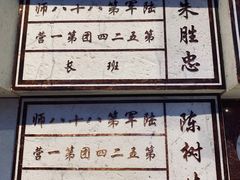 朱胜忠
师八十八第军陆
营一第团四二五第
长班
陈树
师八十八第军陆
营一第团四二五第